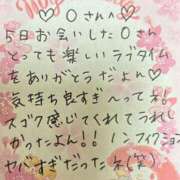 ♡〇さんへ♡
5日お会いした〇さん
とっても楽しいラブタイム
をありがとうだよん♡
気持ち良すぎ〜ってネ!
スゴク感じてくれてうれし
かったよん!!ノンフィクション
ヤバすぎだったネ(笑)